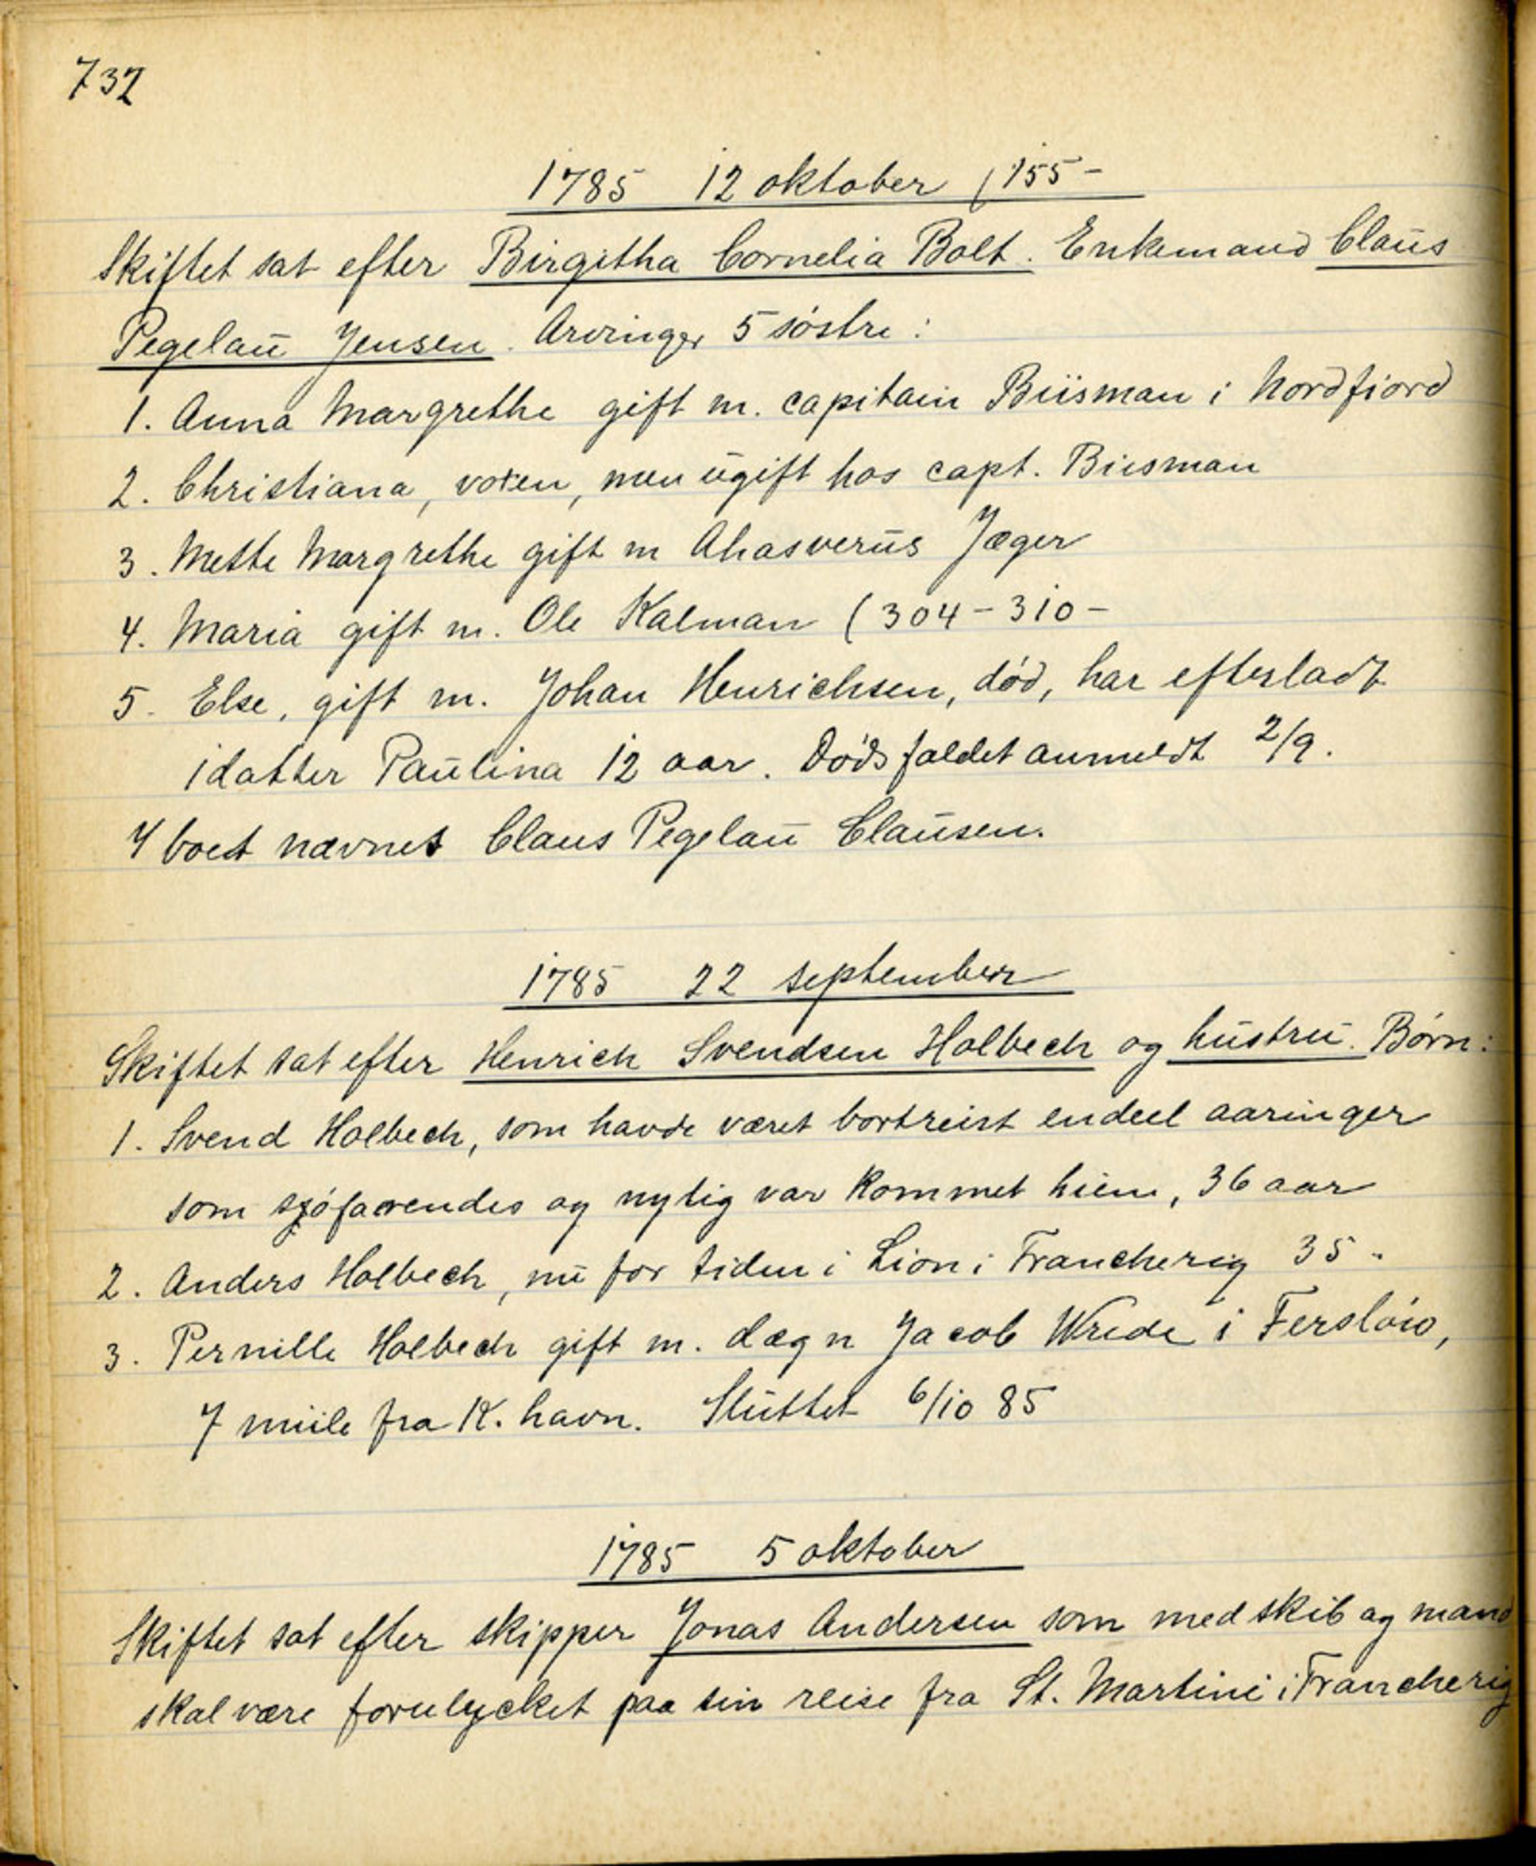 732
1785 12 oktober (155-
Skiftet sat efter Birgitha Cornelia Bolt. Enkemand Claus
Pegelau Jensen. Arvinger 5 söstre:
1. Anna Margrethe gift m. capitain Biisman i Nordfiord
2. Christiana, voxen, men ugift hos capt. Biisman
3. Mette Margrethe gift m Ahasverus Jæger
4. Maria gift m. Ole Kalman (304-310-
5. Else, gift m. Johan Henrichsen, död, har efterladt
1 datter Paulina 12 aar. Dödsfaldet anmeldt 2/9.
I boet nævnes Claus Pegelau Clausen.
1785 22 september
Skiftet sat efter Henrich Svendsen Holbech og hustru. Börn:
1. Svend Holbech, som havde været bortreist endeel aaringer
som sjöfarendes og nylig var kommet hiem, 36 aar
2. Anders Holbech, nu for tiden i Lion i Francherig 35 "
3. Pernille Holbech gift m. dægn Jacob Wrede i Fersløiv,
7 miile fra K.havn. Sluttet 6/10 85
1785 5 oktober
Skiftet sat efter skipper Jonas Andersen som med skib og mand
skal være forulycket paa sin reise fra St. Martini i Francherig